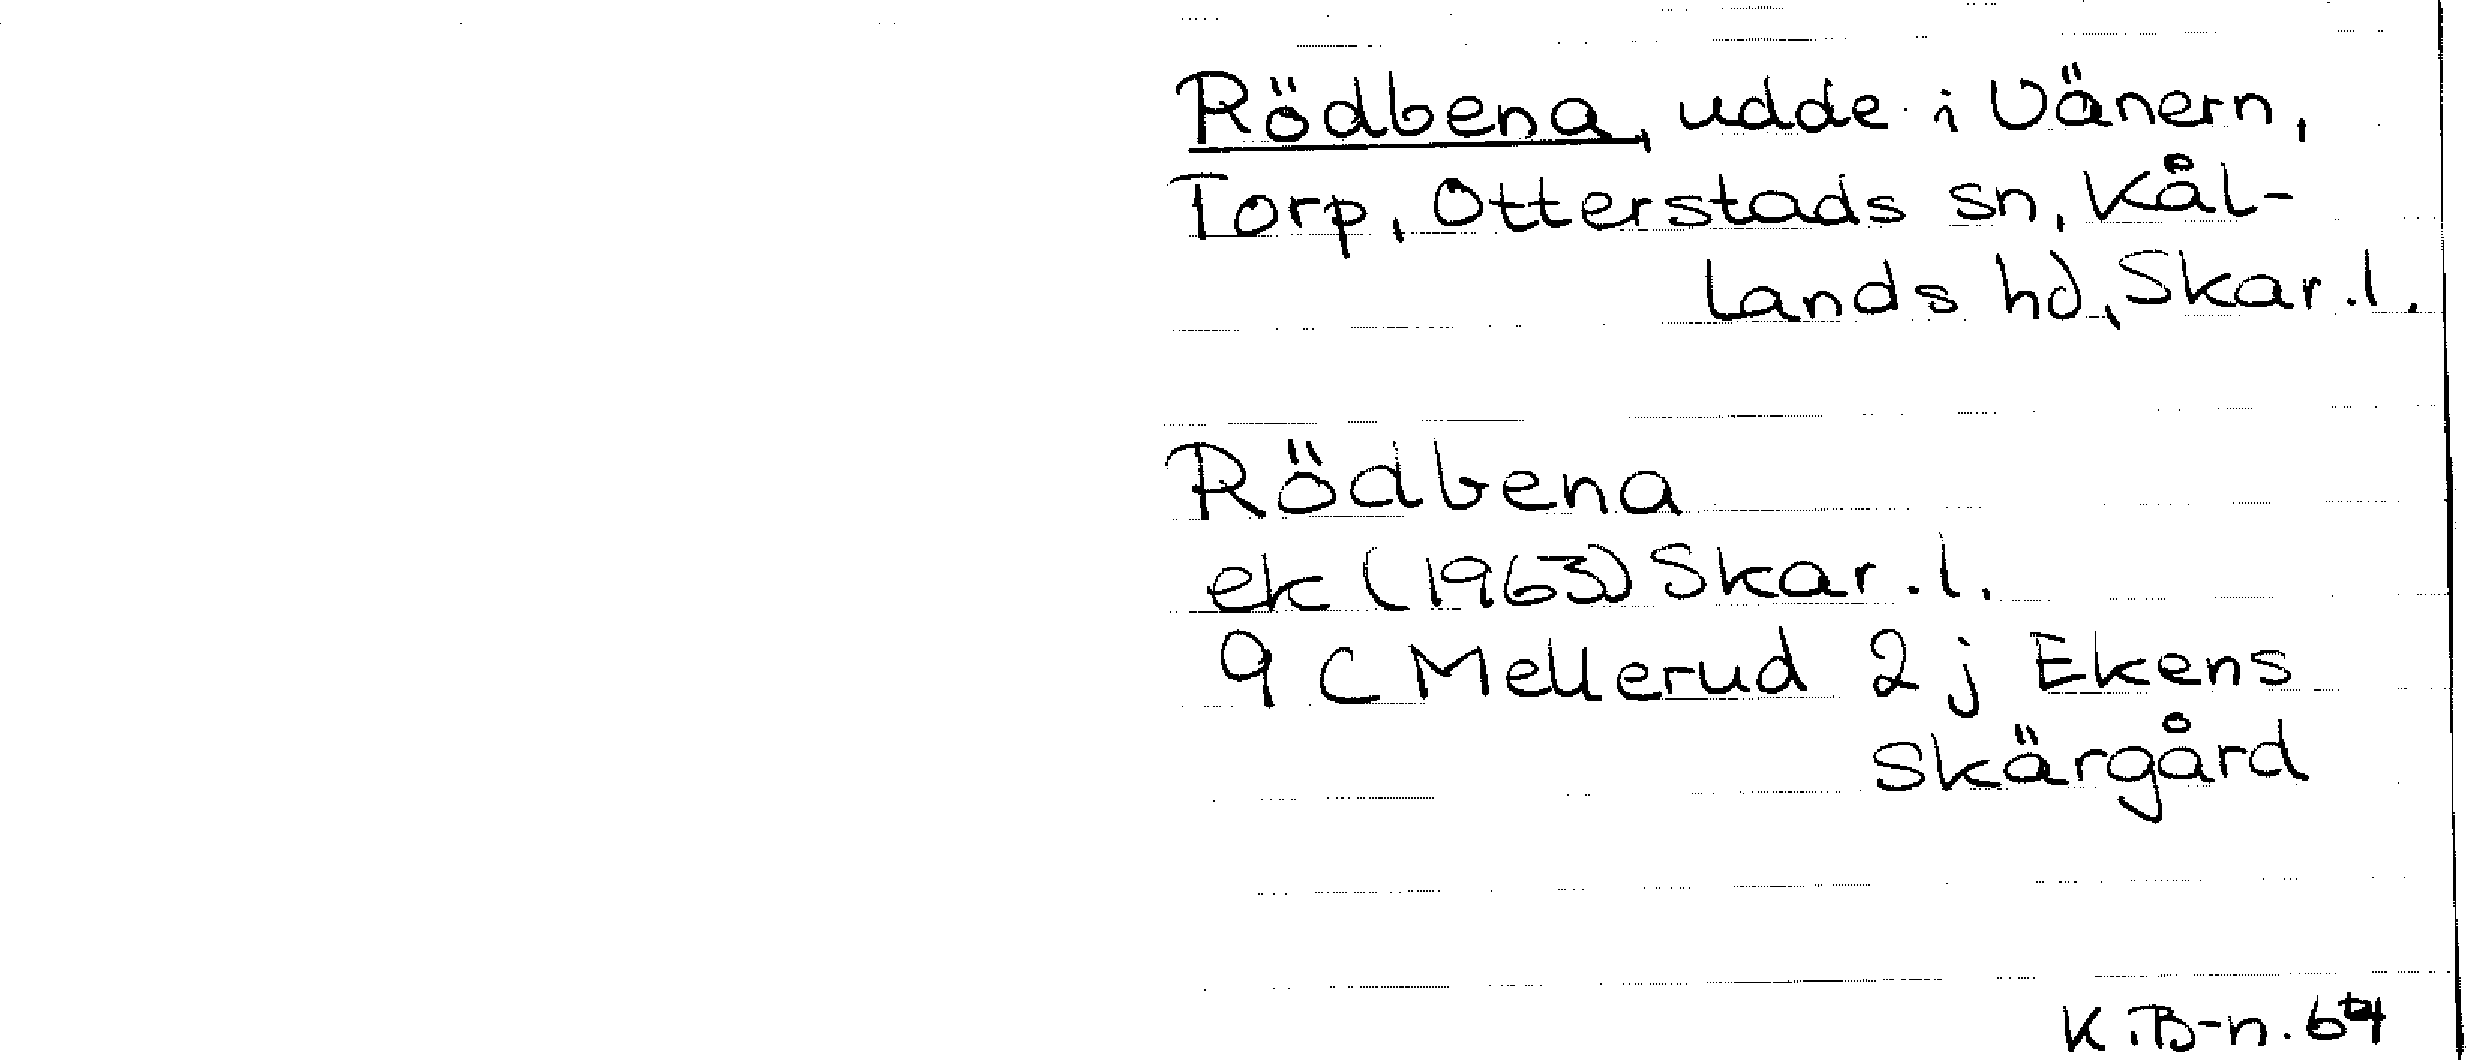 Rödbena, udde i Vänern,
Torp, Otterstads sn, Kål-
lands hd, Skar.l.
Rödbena
ek (1963) Skar.l.
9 C Mellerud 2 j Ekens
Skärgård
K.B-n.